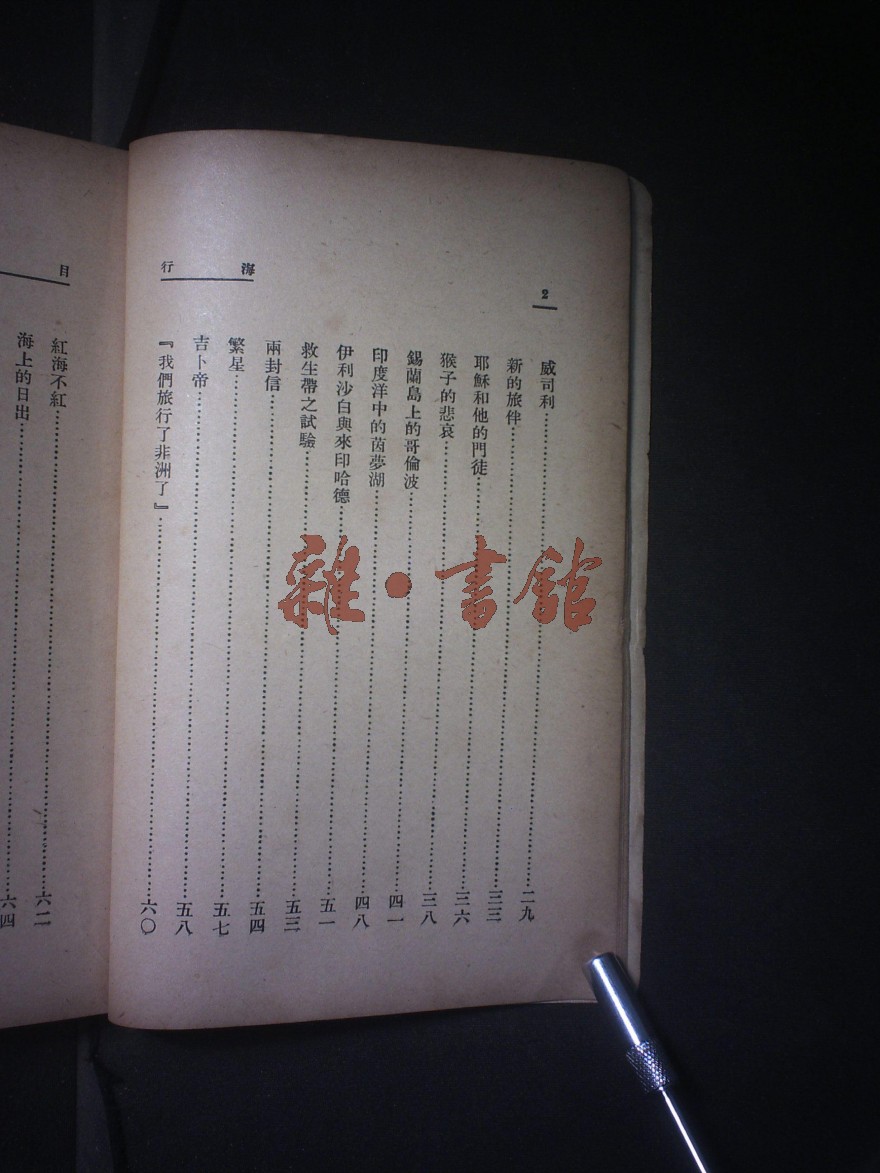 2
海行
威司利……二九
新的旅伴……三三
耶穌和他的門徒……三六
猴子的悲哀……三八
錫蘭島上的哥倫波……四一
印度洋中的茵夢湖……四八
伊利沙白與來印哈德……五一
救生帶之試驗……五三
兩封信……五四
繁星……五七
吉卜帝……五八
『我們旅行了非洲了』……六〇
目
紅海不紅……六二
海上的日出……六四
雜·書館